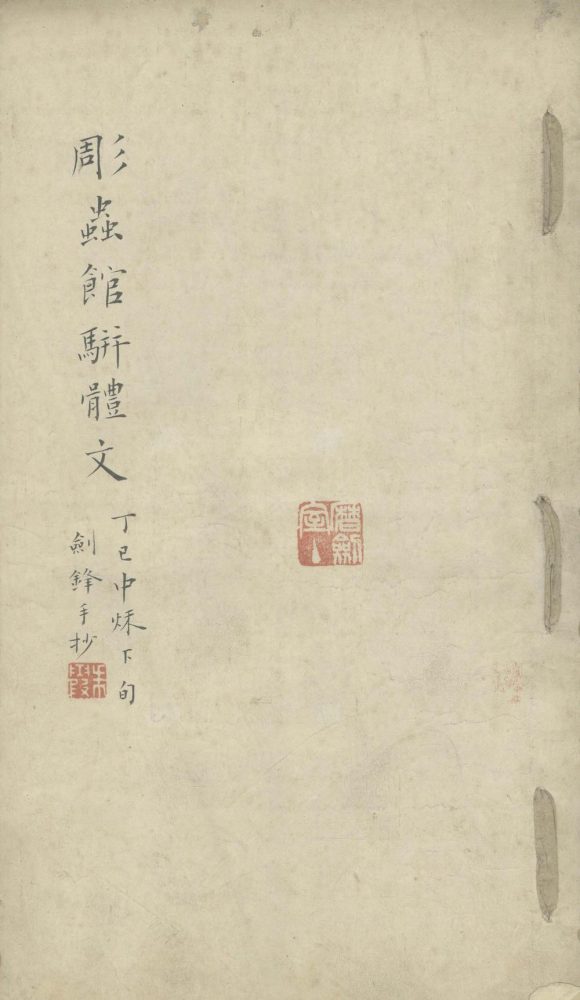 彫蟲館駢體文
丁巳中烁下旬
劍鋒手抄